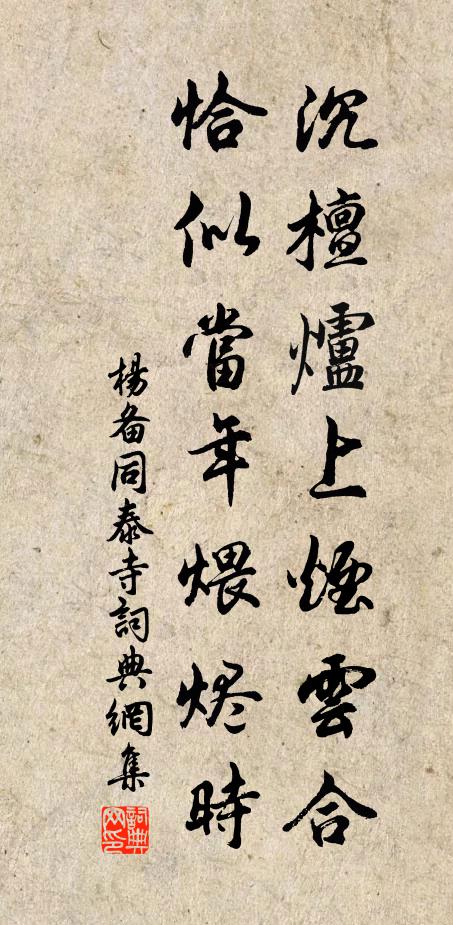 沉檀爐上煙雲合
恰似當年煨烬時
楊备同泰寺詞典網集
詞典网印